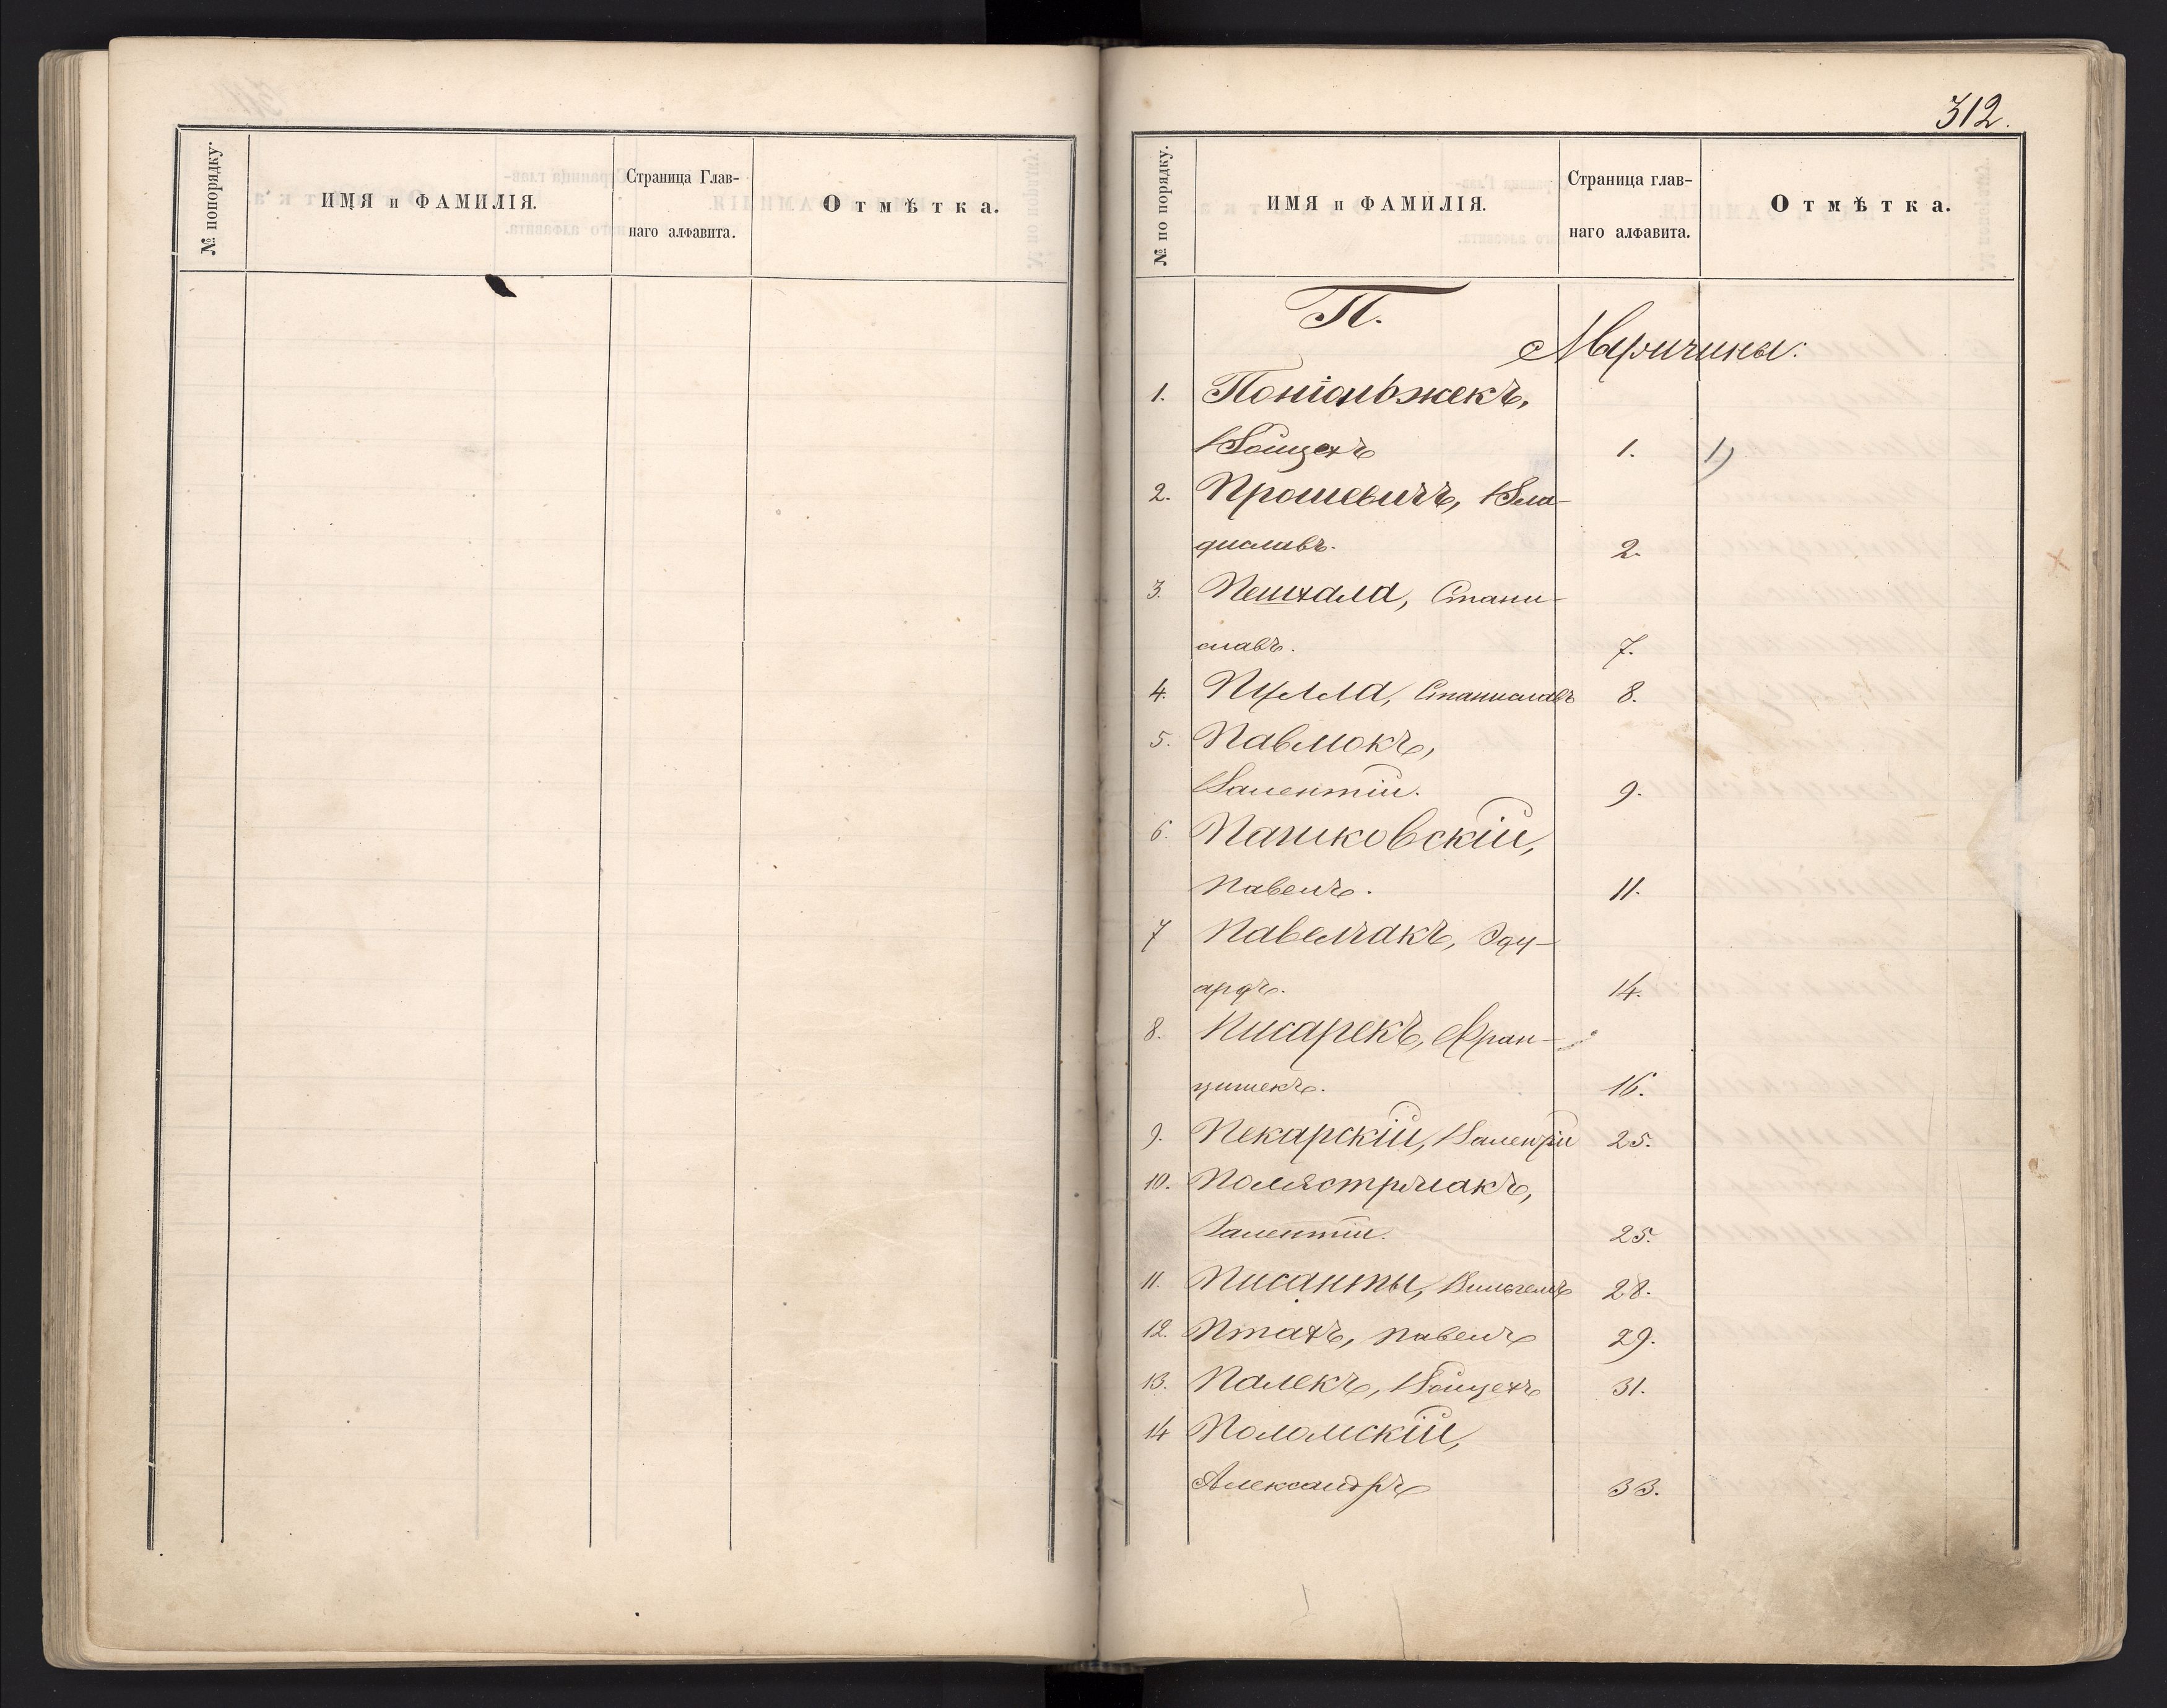 № попорядку.
ИМЯ и ФАМИЛІЯ.
Страница Глав-
наго алфавита.
Отмѣтка.
312.
№ по порядку.
ИМЯ и ФАМИЛІЯ.
Страница глав-
наго алфавита.
Отмѣтка.
П.
Мужчины.
1.
Войцехъ 1. 1)
2. Прошевичъ, Вла-
диславъ. 2.
3. Пешхала, Стани-
славъ. 7.
4. Пулла, Станиславъ 8.
5. Павлокъ,
Валентій. 9.
6. Пачковскій,
Павелъ. 11.
7 Павелчакъ, Эду-
ардъ. 14.
8. Писарекъ, Фран-
цишекъ. 16.
9. Пекарскій, Валентій 25.
10.
Валентій. 25.
11. Писанты, Вильгелмъ 28.
12. Птахъ, Павелъ 29.
13. Палекъ, Войцехъ 31.
14 Поломскій,
Александръ 33.